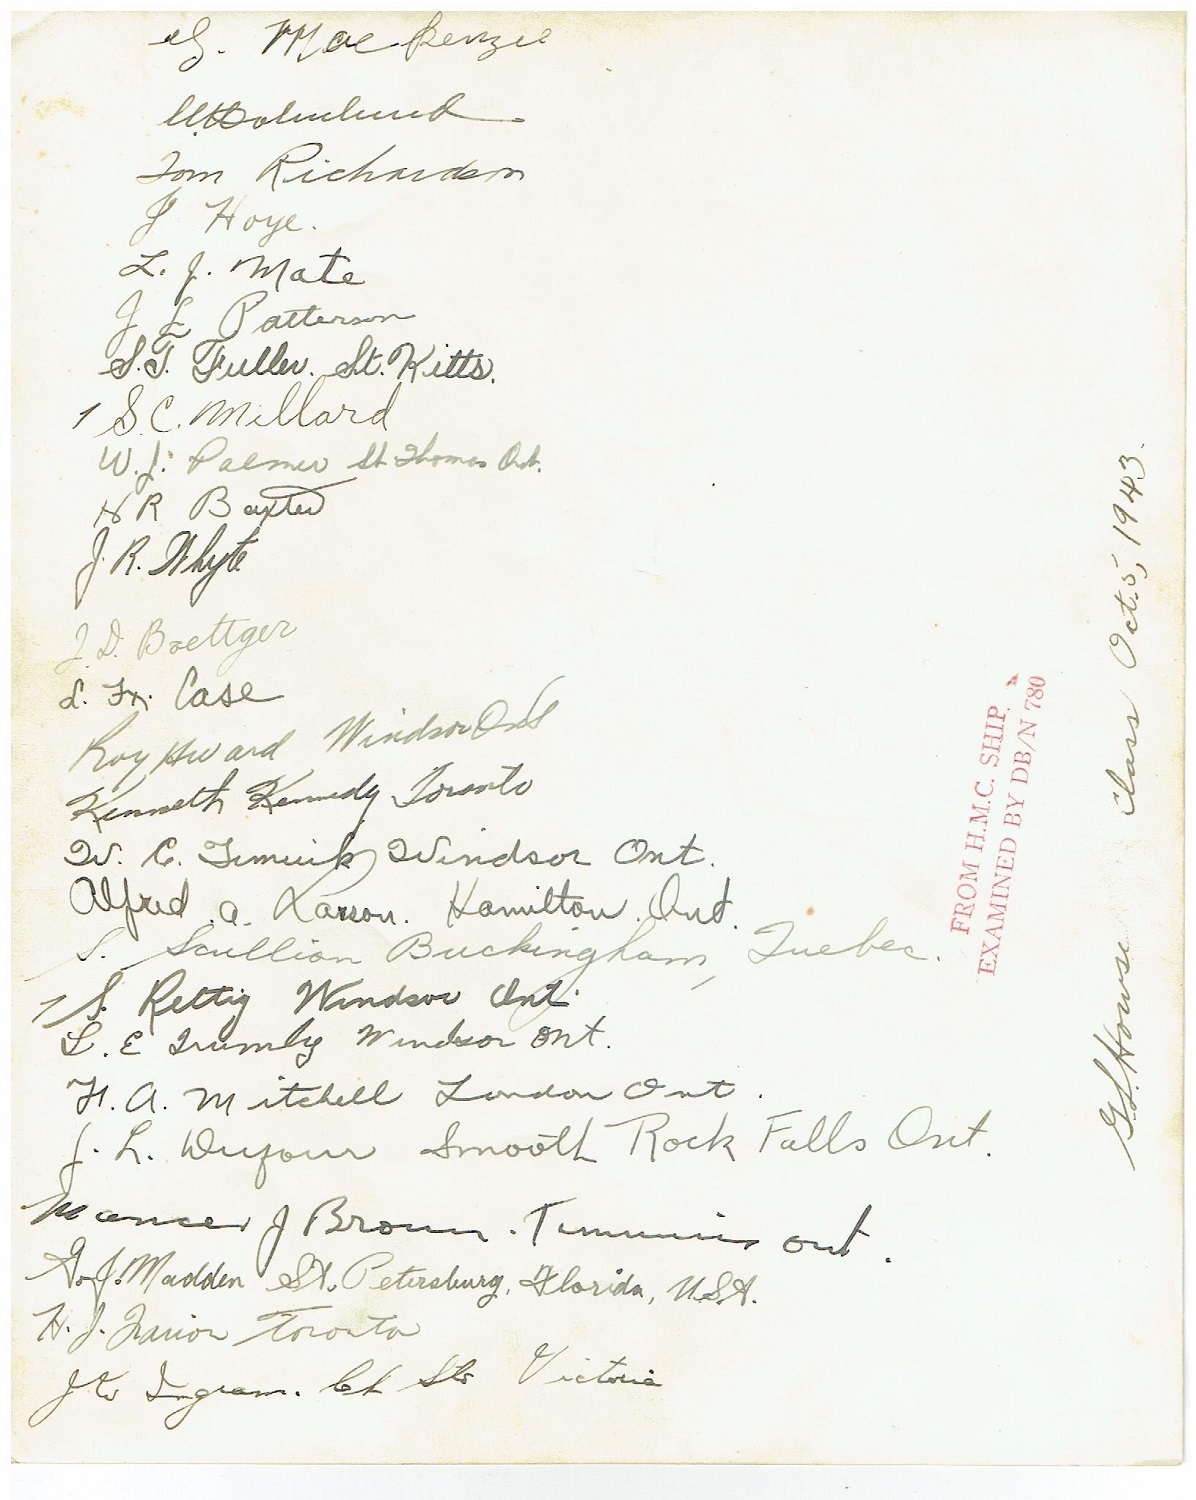 G. MacKenzie
Tom Richardson
J Hoye.
L. J. Mate
J L Patterson
S.T. Fuller. St. Kitts.
S. C. Millard
W. J. Palmer St Thomas Ont.
R Baxter
J. R. Whyte
J. D. Boettger
Case
Roy Windsor Ont
Kenneth Kennedy Toronto
W. C. Windsor Ont.
Alfred A. Larson. Hamilton. Ont.
S. Scullion Buckingham, Quebec.
S. Rettig Windsor Ont.
L. E Trumly Windsor Ont.
H. A. Mitchell London Ont.
J. L. Dufour Smooth Rock Falls Ont.
J Brown. Timmins Ont.
G. J. Madden St. Petersburg, Florida, U.S.A.
H. J. Toronto
Ingram. Victoria
G.L. Howse Class Oct. 5, 1943.
FROM H.M.C. SHIP
EXAMINED BY DB/N 780